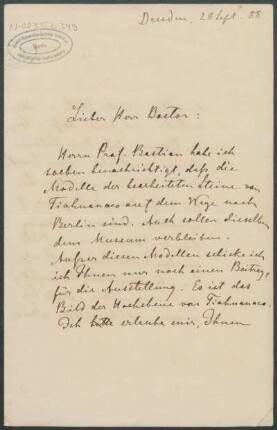 N-0035 s 349
Dresden, 28 Sept. 88.
Lieber Herr Doctor:
Herrn Prof. Bastian habe ich
soeben benachrichtigt, daß die
Modelle der bearbeiteten Steine von
Tiahuanaco auf dem Wege nach
Berlin sind. Auch sollen dieselben
dem Museum verbleiben.
Außer diesen Modellen schicke ich
ich Ihnen nur noch einen Beitrag
für die Ausstellung. Es ist das
Bild der Hochebene von Tiahuanaco.
Ich bitte erlaube mir, Ihnen